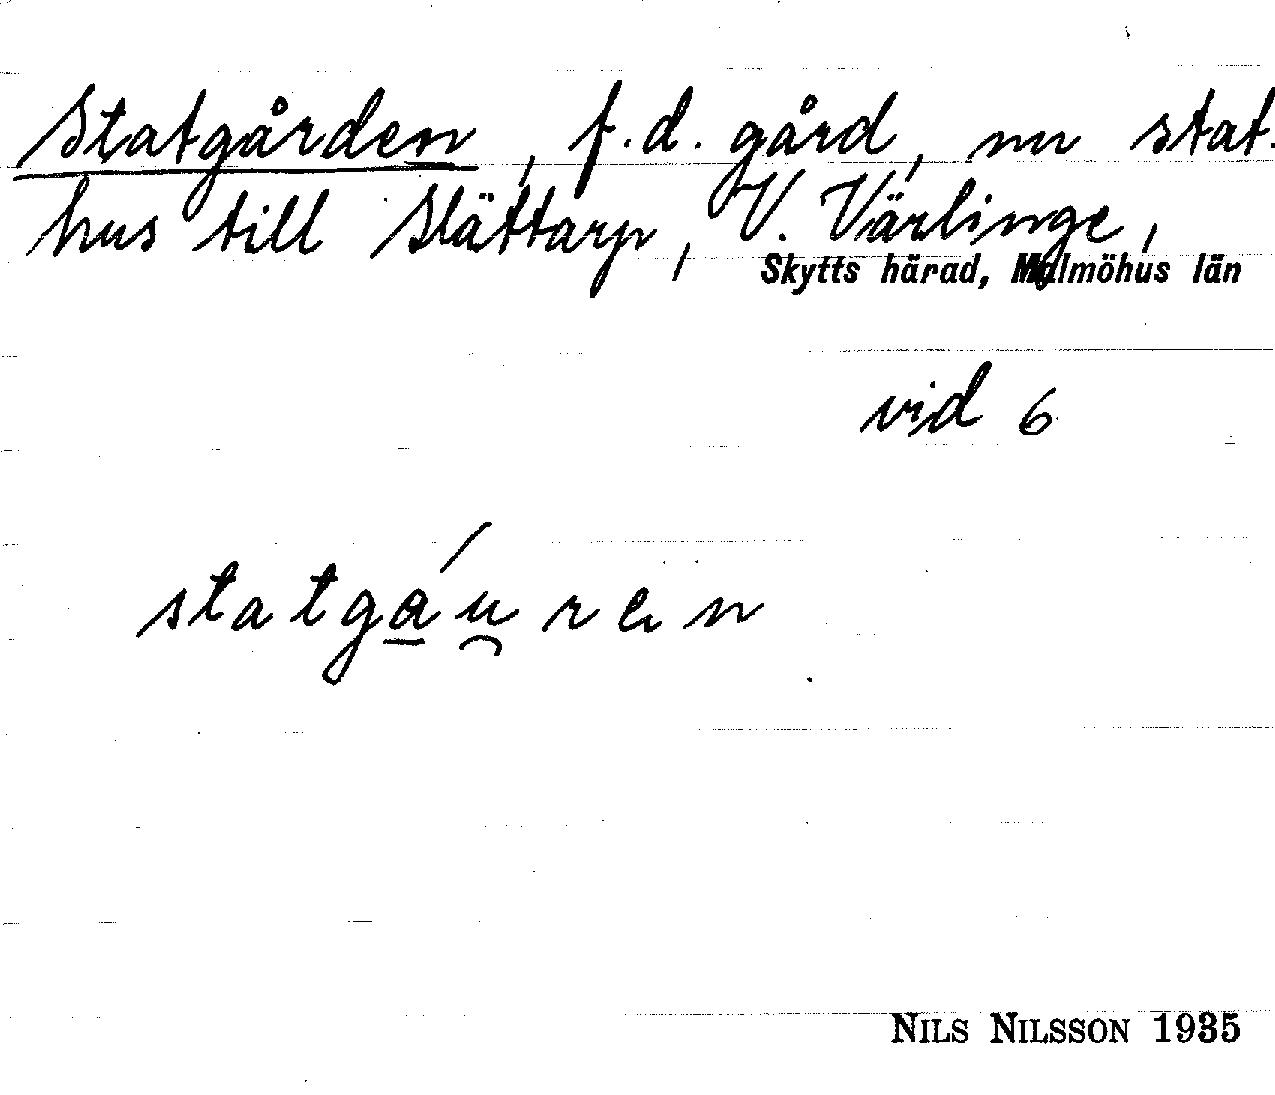 Statgården, f.d. gård, nu stat-
hus till Slättarp, V. Värlinge,
Skytts härad, Malmöhus län
vid 6
statgáu̯ren
NILS NILSSON 1935